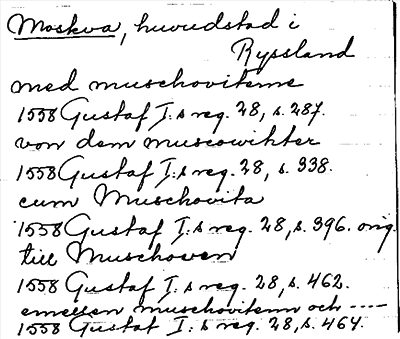 Moskva, huvudstad i
Ryssland
med muschoviterne
1558 Gustaf I:s reg. 28, s. 287.
von dem muscowihter
1558 Gustaf I:s reg. 28, s. 338.
cum Muschovita
1558 Gustaf I:s reg. 28, s. 396. orig.
till Muschoven
1558 Gustaf I:s reg. 28, s. 462.
emellen muschovitenn och ----
1558 Gustaf I:s reg. 28, s. 464.